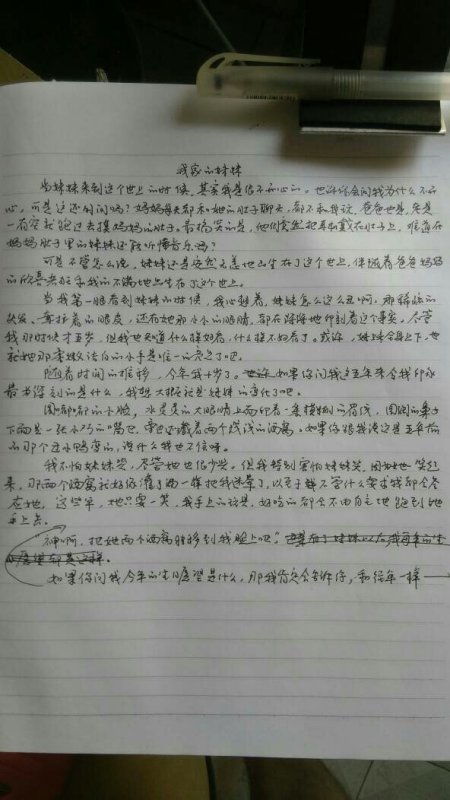 我家的妹妹
当妹妹来到这个世上的时候,其实我是很不开心的。也许你会问我为什么不开
心,可是这还用问吗?妈妈每天都和她的肚子聊天,都不和我说,爸爸也是,老是
一有空就跑过去摸妈妈的肚子。最搞笑的是,他们竟然把耳机戴在肚子上,难道在
妈妈肚子里的妹妹还能听懂音乐吗?
可是不管怎么说,妹妹还是安然无恙地出生在了这个世上,伴随着爸爸妈妈
的欣喜若狂和我的不满地出生在了这个世上。
当我第一眼看到妹妹的时候,我心想着,妹妹怎么这么丑啊,那稀疏的
头发、耷拉着的眼皮,还有她那小小的眼睛,都在深深地印刻着这个事实。尽管
我那时候才五岁,但我也知道什么操好看,什么操不好看了。或许,妹妹全身上下,也
就她那李嫩洁白的小手是唯一的亮点了吧。
随着时间的推移,今年我十岁了。如果你问我这五年来令我印象
最为深刻的是什么,我想大概就是妹妹的变化了吧。
圆嘟嘟的小脸,水灵灵的大眼睛上面印着一条模糊的眉线,圆圆的鼻子
下面是一张小巧的嘴巴,旁边还藏着两个浅浅的酒窝。如果你跟我说这是五年前
的那个丑小鸭变的,说什么我也不信呀。
我不怕妹妹哭,尽管她也很少哭。但我特别害怕妹妹笑,因为她一笑起
来,那两个酒窝就好像灌了酒一样把我迷晕了,以至于她不管什么要求我都会答
应她,这些年,她只要一笑,我手上的玩具,好吃的都会不由自主地跑到她
手上去。
神啊,把她两个酒窝转移到我脸上吧!
如果你问我今年的生日愿望是什么,那我肯定会告诉你,和往年一样——